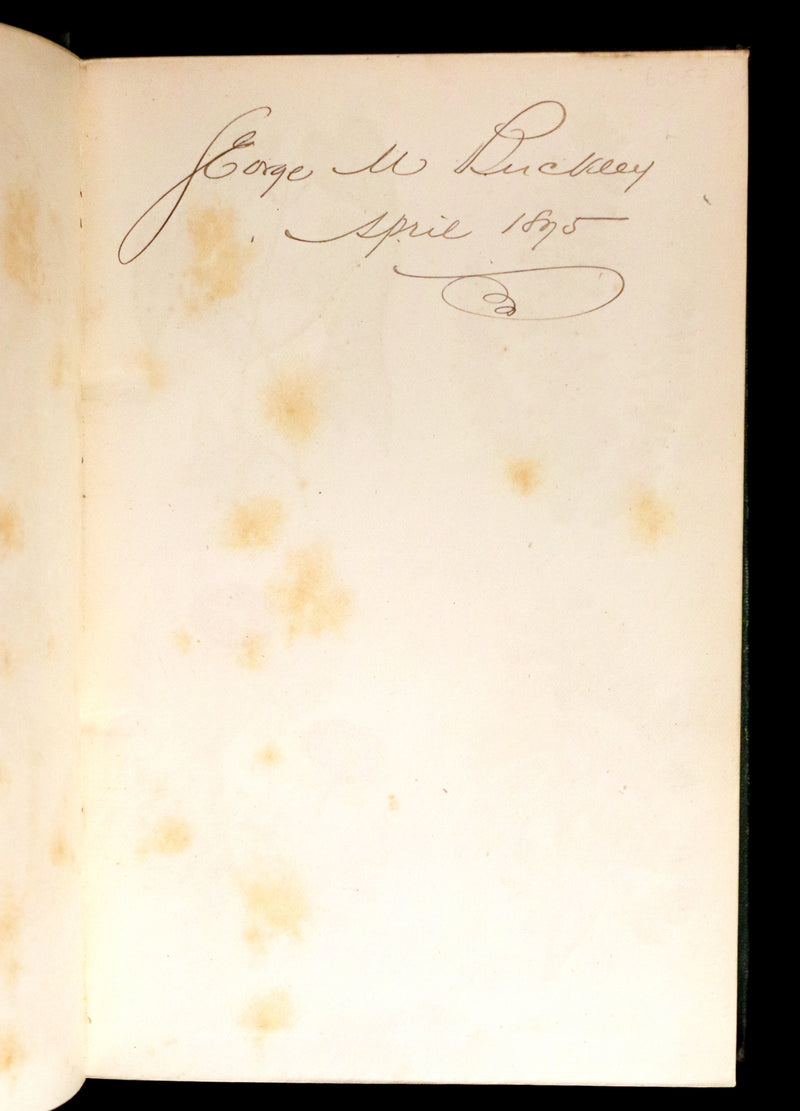 George M Buckley
April 1895